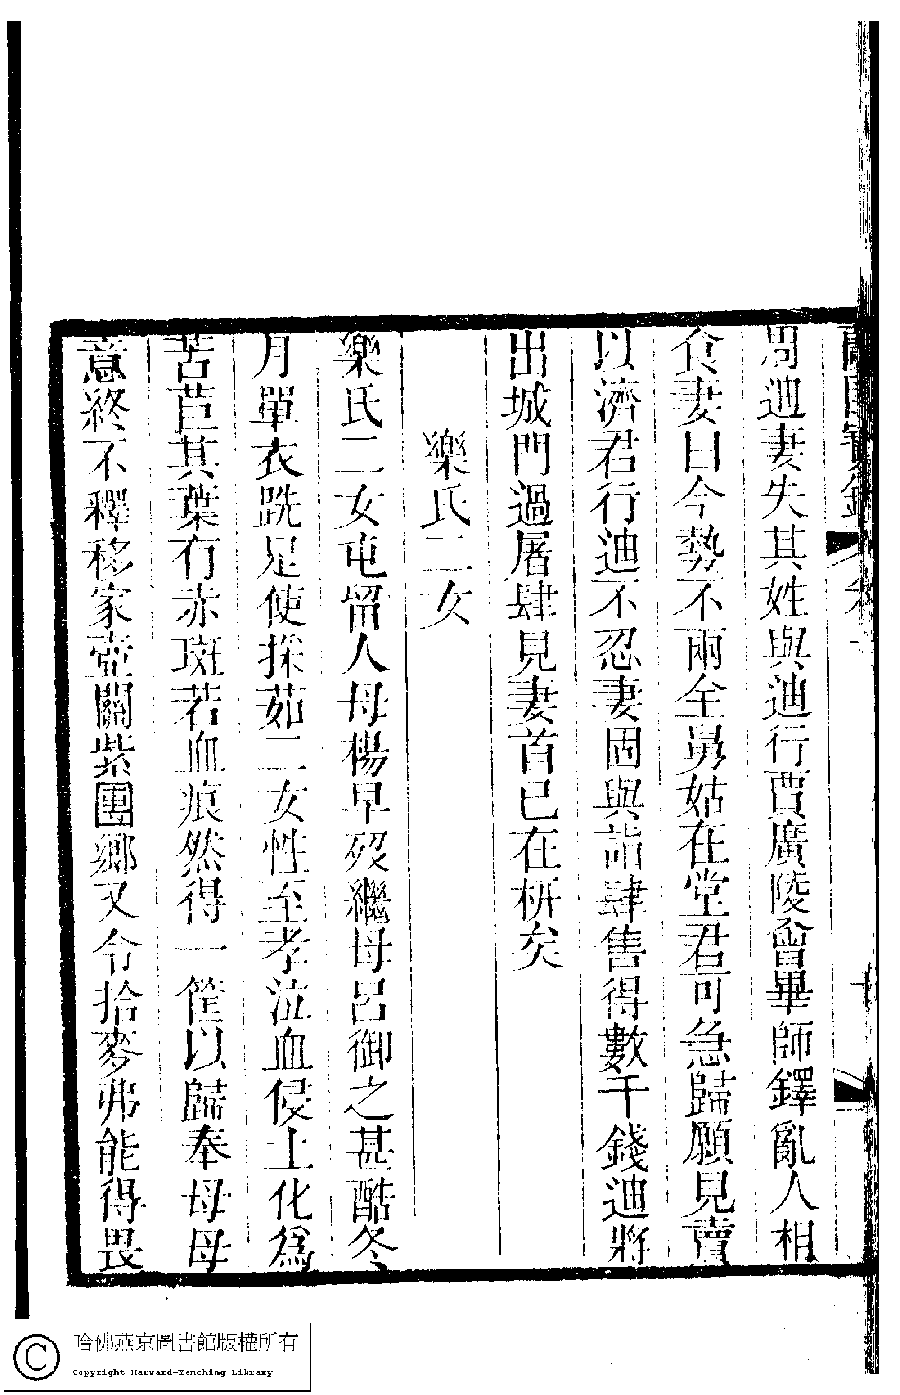 周迪妻失其姓與迪行賈廣陵會畢師鐸亂人相
食妻曰今勢不兩全舅姑在堂君可急歸願見賣
以濟君行迪不忍妻固與詣肆售得數千錢迪將
出城門過屠肆見妻首已在枅矣
樂氏二女
樂氏二女屯留人母楊早歿繼母呂御之甚酷冬
月單衣跣足使採茹二女性至孝泣血侵土化為
苦苣其葉有赤斑若血痕然得一筐以歸奉母母
意終不釋移家壺關紫團鄉又令拾麥弗能得畏
哈佛燕京圖書館版權所有
Copyright Harvard-Yenching Library